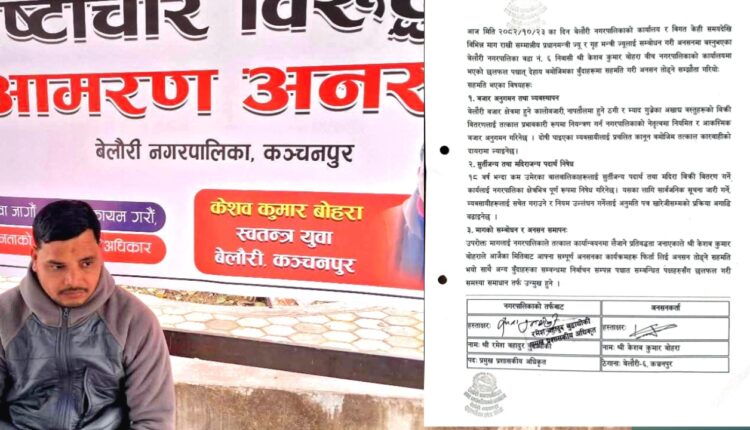 ष्टाचार विरुद्ध
आमरण अनस
बेलौरी नगरपालिका, कञ्चनपुर
वा जागौं
कायम गरौं,
अधिकार
केशव कुमार बोहरा
स्वतन्त्र युवा
बेलौरी, कञ्चनपुर
आज मिति २०८२/१०/२३ का दिन बेलौरी नगरपालिकाको कार्यालय र विगत केही समयदेखि
विभिन्न माग राखी सम्माननीय प्रधानमन्त्री ज्यू र गृह मन्त्री ज्यूलाई सम्बोधन गरी अनसनमा बस्नुभएका
बेलौरी नगरपालिका वडा नं. ६ निवासी श्री केशव कुमार बोहरा बीच नगरपालिकाको कार्यालयमा
भएको छलफल पश्चात् देहाय बमोजिमका बुँदाहरूमा सहमति गरी अनसन तोड्ने सम्झौता गरियो:
सहमति भएका विषयहरू:
१. बजार अनुगमन तथा व्यवस्थापन
बेलौरी बजार क्षेत्रमा हुने कालोबजारी, नापतौलमा हुने ठगी र म्याद गुज्रेका अखाद्य वस्तुहरूको बिक्री
वितरणलाई तत्काल प्रभावकारी रूपमा नियन्त्रण गर्न नगरपालिकाको नेतृत्वमा नियमित र आकस्मिक
बजार अनुगमन गरिनेछ । दोषी पाइएका व्यवसायीलाई प्रचलित कानून बमोजिम तत्काल कारवाहीको
दायरामा ल्याइनेछ।
२. सुर्तीजन्य तथा मदिराजन्य पदार्थ निषेध
१८ वर्ष भन्दा कम उमेरका बालबालिकाहरूलाई सुर्तीजन्य पदार्थ तथा मदिरा बिक्री वितरण गर्ने
कार्यलाई नगरपालिका क्षेत्रभित्र पूर्ण रूपमा निषेध गरिनेछ। यसका लागि सार्वजनिक सूचना जारी गर्ने,
व्यवसायीहरूलाई सचेत गराउने र नियम उल्लंघन गर्नेलाई अनुमति पत्र खारेजीसम्मको प्रक्रिया अगाडि
बढाइनेछ ।
३. मागको सम्बोधन र अनसन समापन:
उपरोक्त मागलाई नगरपालिकाले तत्काल कार्यान्वयनमा लैजाने प्रतिबद्धता जनाएकाले श्री केशव कुमार
बोहराले आजैका मितिबाट आफ्ना सम्पूर्ण अनसनका कार्यक्रमहरू फिर्ता लिई अनसन तोड्ने सहमति
भयो साथै अन्य बुँदाहरूका सम्बन्धमा निर्वाचन सम्पन्न पश्चात सम्बन्धित पक्षहरूसँग छलफल गरी
समस्या समाधान तर्फ उन्मुख हुने ।
नगरपालिकाको तर्फबाट अनसनकर्ता
हस्ताक्षर: हस्ताक्षर:
प्रमुख प्रशासकीय अधिकृत
नाम: श्री रमेश बहादुर नाम: श्री केशव कुमार बोहरा
पद: प्रमुख प्रशासकीय अधिकृत ठेगाना: बेलौरी-६, कञ्चनपुर